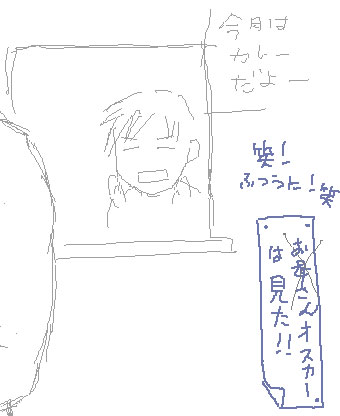 今月は
カレー
だよー
笑!
ふつうに!笑
お母さんオスカー
は見た!!